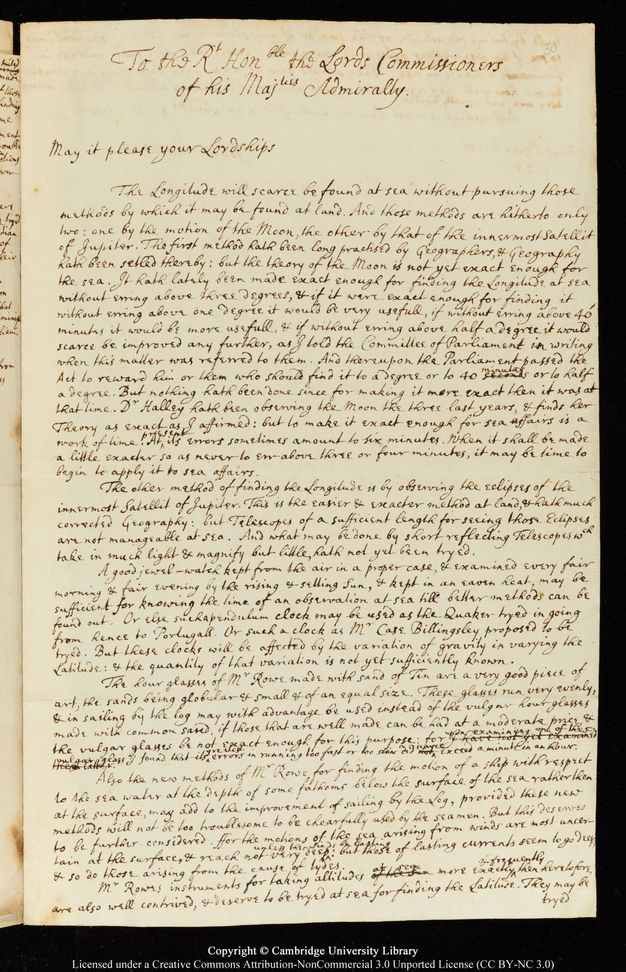 30
To the Rt Honble the Lords Commissioners
of his Majties Admiralty.
May it please your Lordships
The Longitude will scarce be found at sea without pursuing those
methods by which it may be found at land. And those methods are hitherto only
two: one by the motion of the Moon, the other by that of the innermost Satellit
of Jupiter. The first method hath been long practised by Geographers, & Geography
hath been setled thereby: but the theory of the Moon is not yet exact enough for
the sea. It hath lately been made exact enough for finding the Longitude at sea
without erring above three degrees, & if it were exact enough for finding it
without erring above one degree it would be very usefull, if without erring above 40
minutes it would be more usefull, & if without erring above half a degree it would
scarce be improved any further, as I told the Committee of Parliament in writing
when this matter was referred to them. And thereupon the Parliament passed the
Act to reward him or them who should find it to a degree or to 40 minutes or to half
a degree. But nothing hath been done since for making it more exact then it was at
that time. Dr Halley hath been observing the Moon the three last years, & finds her
Theory as exact as I affirmed: but to make it exact enough for sea affairs is a
work of time. At present its errors sometimes amount to six minutes. When it shall be made
a little exacter so as never to err above three or four minutes, it may be time to
begin to apply it to sea affairs.
The other method of finding the Longitude is by observing the eclipses of the
innermost Satellit of Jupiter. This is the easier & exacter method at land, & hath much
corrected Geography: but Telescopes of a sufficient length for seeing those Eclipses
are not manageable at sea. And what may be done by short reflecting Telescopes wch
take in much light & magnify but little, hath not yet been tryed.
A good jewel-watch kept from the air in a proper case, & examined every fair
morning & fair evening by the rising & setting Sun, & kept in an eaven heat, may be
sufficient for knowing the time of an observation at sea till better methods can be
found out. Or else such a pendulum clock may be used as the Quaker tryed in going
from hence to Portugall. Or such a clock as Mr Case Billingsley proposed to be
tryed. But these clocks will be affected by the variation of gravity in varying the
Latitude: & the quantity of that variation is not yet sufficiently known.
The hour glasses of Mr Rowe made with sand of Tin are a very good piece of
art, the sands being globular & small & of an equal size. These glasses run very evenly,
& in sailing by the log may with advantage be used instead of the vulgar hour glasses
made with common sand, if those that are well made can be had at a moderate price, &
the vulgar glasses be not exact enough for this purpose: for upon examining one of these
vulgar glasses I found that its errors in running too fast or too slow did scarce exceed a minute in an hour.
Also the new methods of Mr Rowe for finding the motion of a ship with respect
to the sea water at the depth of some fathoms below the surface of the sea rather than
at the surface, may add to the improvement of sailing by the Log, provided these new
methods will not be too troublesome to be chearfully used by the seamen. But this deserves
to be further considered. ffor the motions of the sea arising from winds are most uncer-
tain at the surface, & reach not very deep unless the winds be lasting: but those of lasting currents seem to go deep,
& so do those arising from the cause of tydes.
Mr Rowes instruments for taking altitudes at sea more exactly & frequently then heretofore,
are also well contrived, & deserve to be tryed at sea for finding the Latitude. They may be
tryed
Copyright © Cambridge University Library
Licensed under a Creative Commons Attribution-NonCommercial 3.0 Unported License (CC BY-NC 3.0)